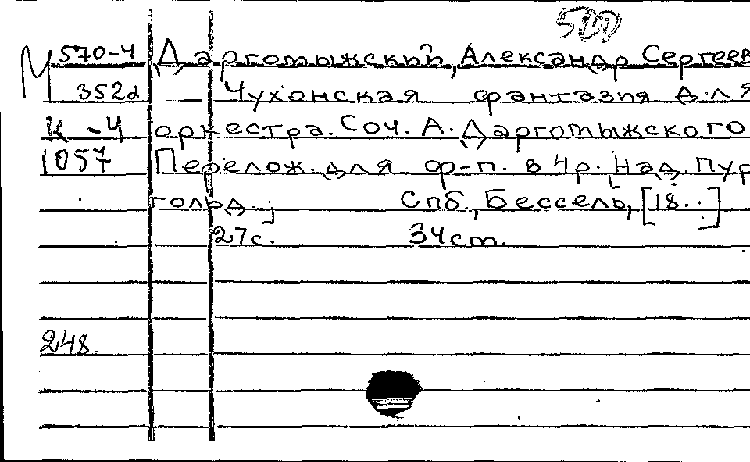 500
М 570-4 Даргомыжский, Александр Сергеев
352d - Чухонская фантазия для
К-4 оркестра. Соч. А. Даргомыжского
1057 Перелож. для ф-п. в 4р. Над. Пур
гольд.; Спб., Бессель, [18..]
27с. 34cm.
248.